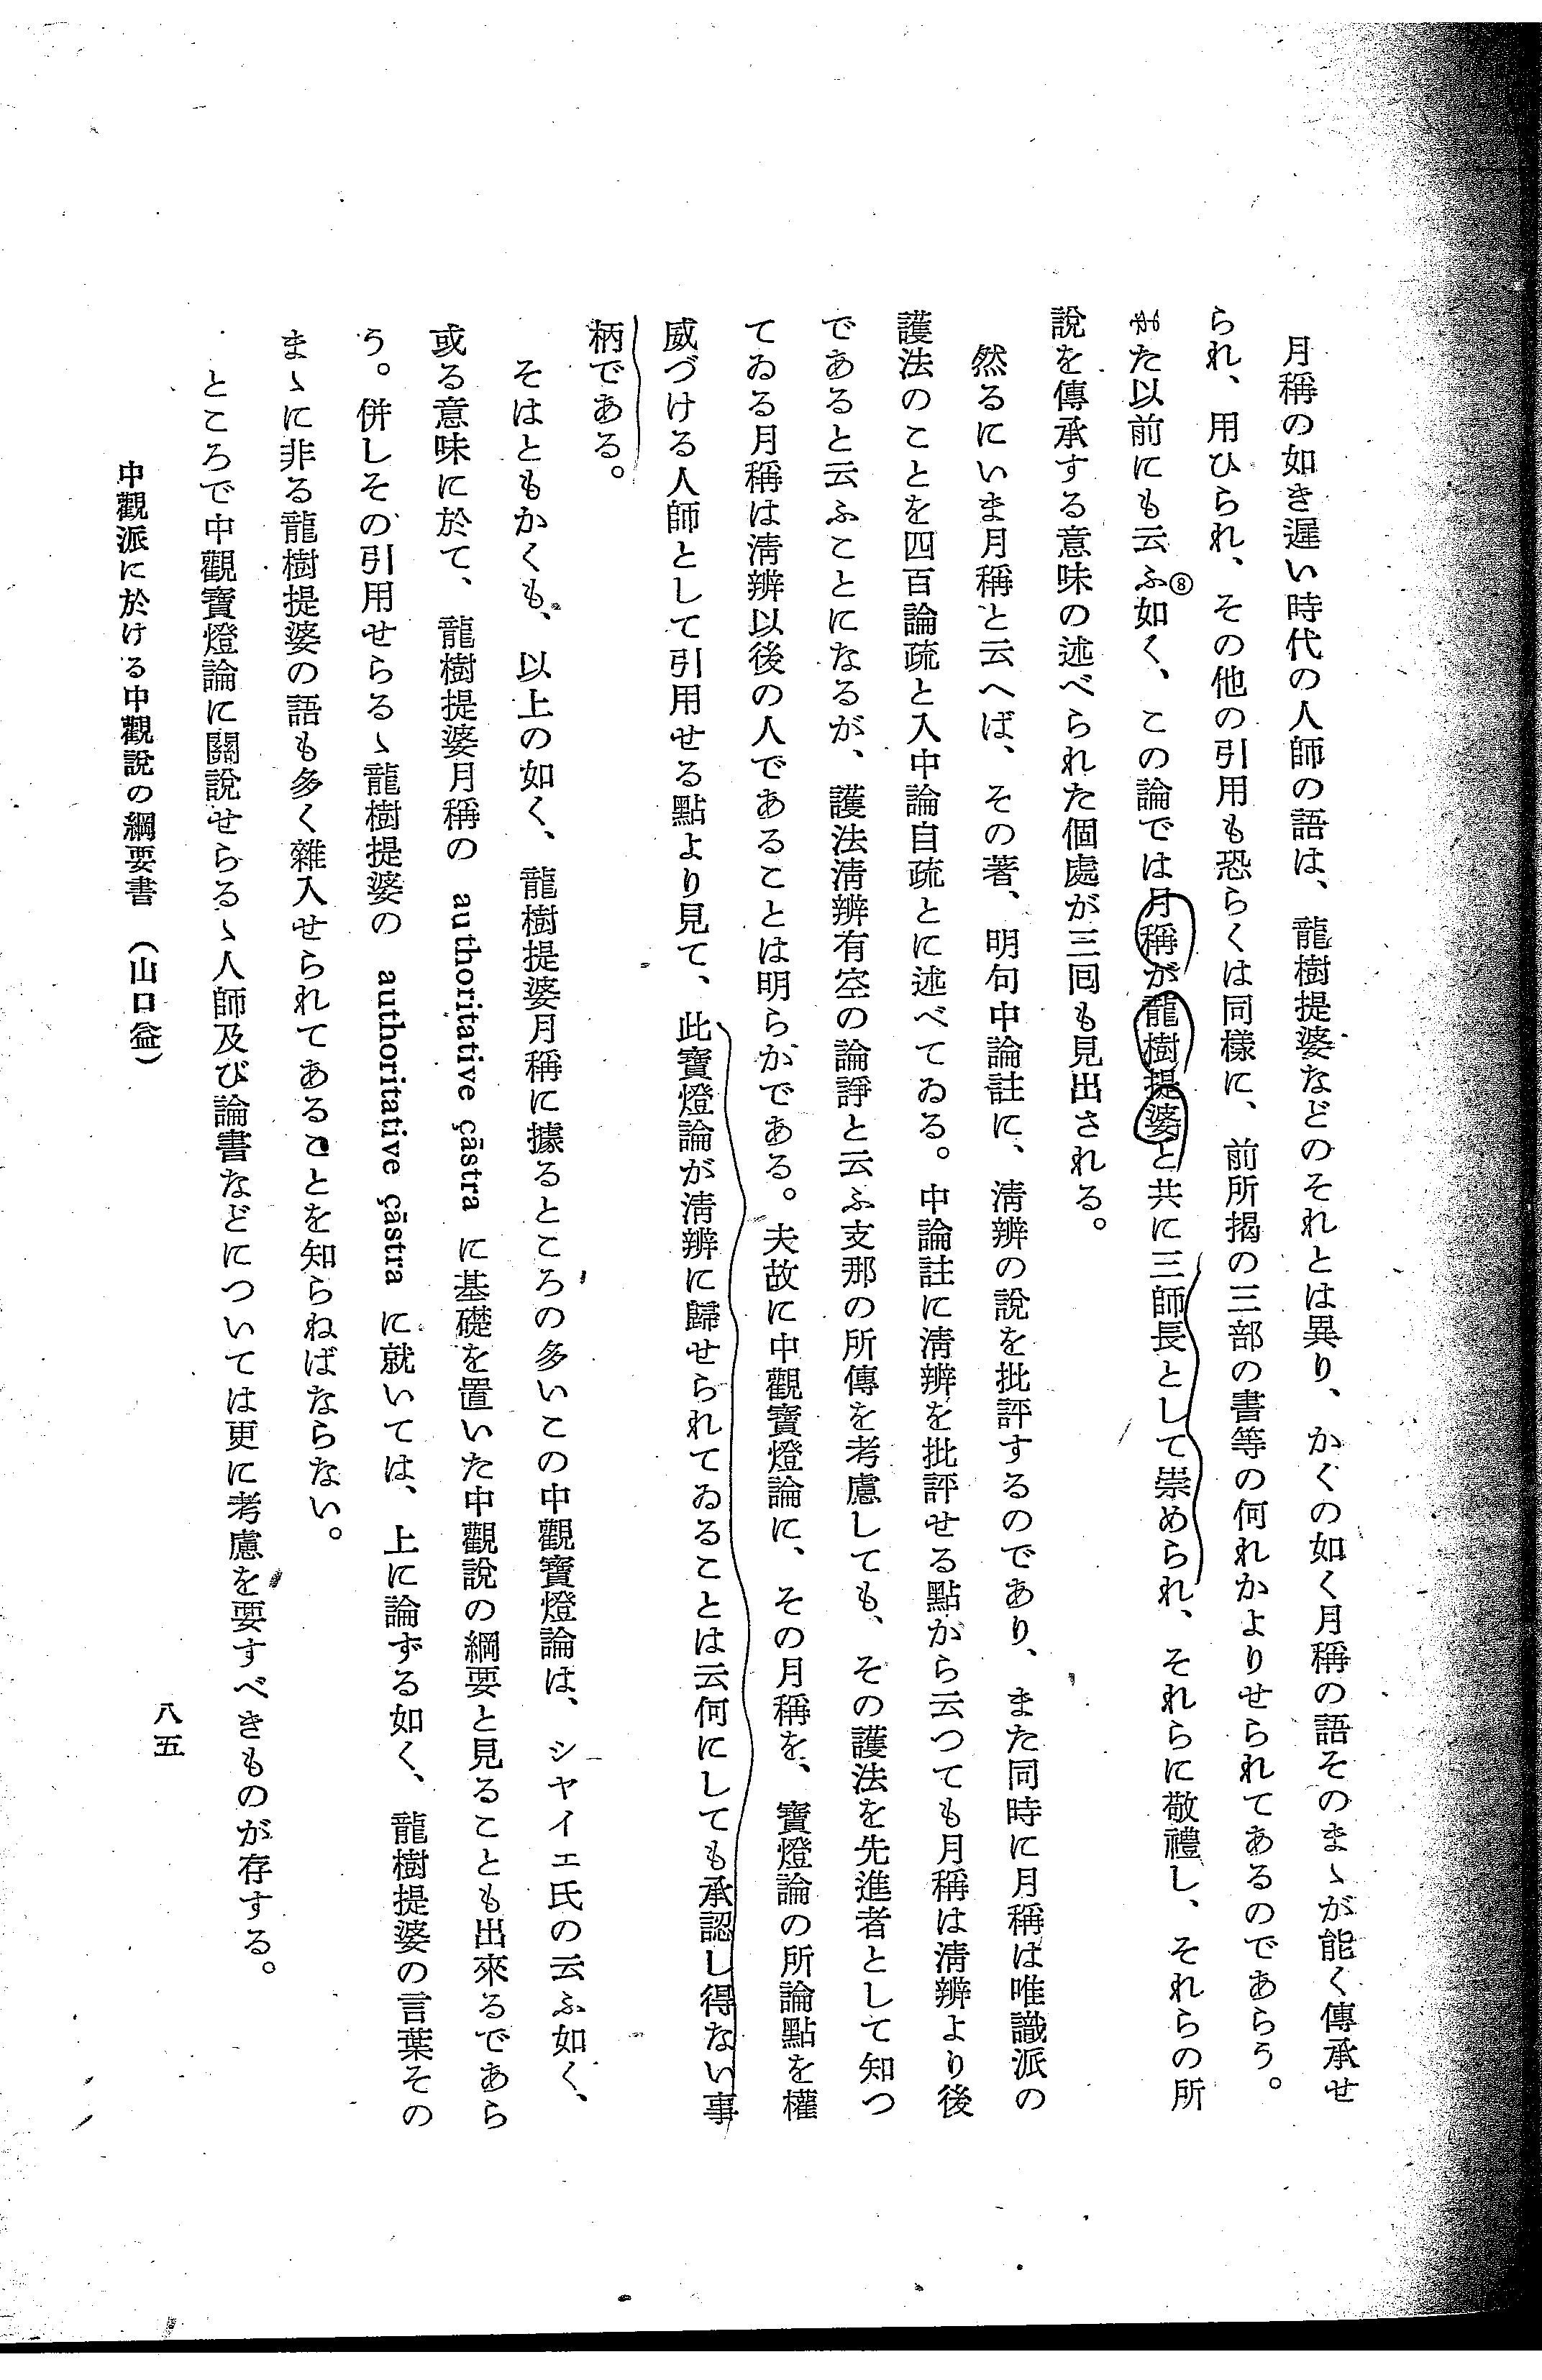 月稱の如き遲い時代の人師の語は、龍樹提婆などのそれとは異り、かくの如く月稱の語そのまゝが能く傳承せ
られ、用ひられ、その他の引用も恐らくは同樣に、前所揭の三部の書等の何れかよりせられてあるのであらう。
また以前にも云ふ⑧如く、この論では月稱が龍樹提婆と共に三師長として崇められ、それらに敬禮し、それらの所
說を傳承する意味の述べられた個處が三回も見出される。
然るにいま月稱と云へば、その著、明句中論註に、淸辨の說を批評するのであり、また同時に月稱は唯識派の
護法のことを四百論疏と入中論自疏とに述べてゐる。中論註に淸辨を批評せる點から云つても月稱は淸辨より後
であると云ふことになるが、護法淸辨有空の論諍と云ふ支那の所傳を考慮しても、その護法を先進者として知つ
てゐる月稱は淸辨以後の人であることは明らかである。夫故に中觀寶燈論に、その月稱を、寶燈論の所論點を權
威づける人師として引用せる點より見て、此寶燈論が淸辨に歸せられてゐることは云何にしても承認し得ない事
柄である。
そはともかくも、以上の如く、龍樹提婆月稱に據るところの多いこの中觀寶燈論は、シヤイエ氏の云ふ如く、
或る意味に於て、龍樹提婆月稱の authoritative çāstra に基礎を置いた中觀說の綱要と見ることも出來るであら
う。併しその引用せらるゝ龍樹提婆の authoritative çāstra に就いては、上に論ずる如く、龍樹提婆の言葉その
まゝに非る龍樹提婆の語も多く雜入せられてあることを知らねばならない。
ところで中觀寶燈論に關說せらるゝ人師及び論書などについては更に考慮を要すべきものが存する。
中觀派に於ける中觀說の綱要書 (山口益)
八五